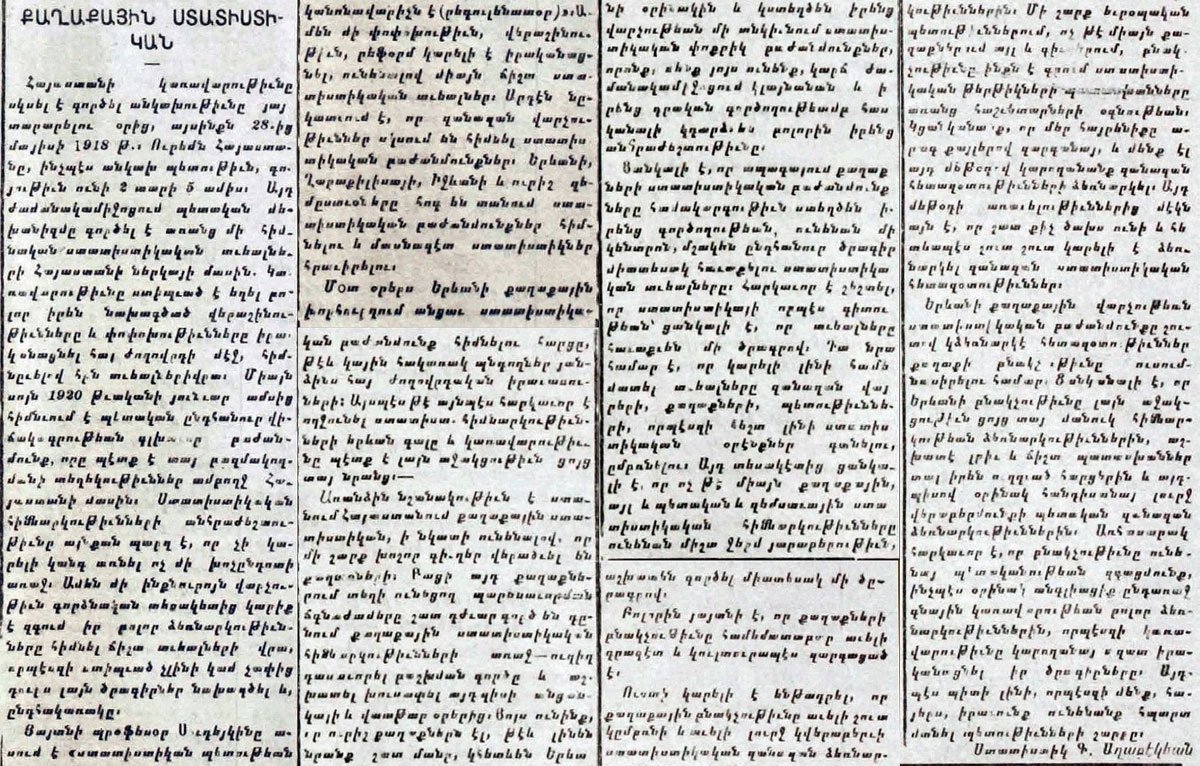 ՔԱՂԱՔԱՅԻՆ ՍՏԱՏԻՍՏԻ-
ԿԱՆ
Հայաստանի կառավարութիւնը
սկսել է գործել անկախութիւնը յայ
տարարելու օրից, այսինքն 28-ից
մայիսի 1918 թ.։ Ուրեմն Հայաստա-
նը, ինչպէս անկախ պետութիւն, գո-
յութիւն ունի 2 տարի 5 ամիս։ Այդ
ժամանակամիջոցում պետական մե-
խանիզմը գործել է առանց մի հիմ-
նական ստատիստիկական տուեալնե-
րի Հայաստանի ներկայի մասին. Կա
ռավարութիւնը ստիպուած է եղել բո-
լոր իրեն նախագծած վերաշինու-
թիւնները և փոփոխութիւնները իրա-
կանացնել հայ ժողովրդի մէջ, հիմ-
նըւելով հին տուեալներիվրայ։ Միայն
սոյն 1920 թւականի յունւար ամսից
հիմնւում է պետական ընդհանուր վի-
ճակագրութեան գլխաւոր բաժան-
մունք, որը պէտք է տայ բազմակող-
մանի տեղեկութիւններ ամբողջ Հա-
յաստանի մասին։ Ստատիստիկական
հիմնարկութիւնների անհրաժեշտու-
թիւնը այնքան պարզ է, որ չի կա-
րելի կանգ առնել ոչ մի խոչընդոտի
առաջ։ Ամեն մի ինքնուրոյն վարչու-
թիւն գործնական տեսակետից կարիք
է զգում իր բոլոր ձեռնարկութիւն-
ները հիմնել ճիշտ տւեալների վրա,
որպէսզի ստիպւած չլինի կամ չափից
դուրս լայն ծրագիրներ նախագծել և,
ընդհակառակը։
Յայտնի պրոֆեսօր
սում է «ստատիստիկան պետութեան
կանոնավարիչն է (րեգուլեատօր)»։ Ա-
մեն մի փոփոխութիւն, վերաշինու-
թիւն, րեֆօրմ կարելի է իրականաց-
նել, ունենալով միայն ճիշտ ստա-
տիստիկական տւեալներ։ Արդէն նը-
կատւում է, որ զանազան վարչու-
թիւններ սկսում են հիմնել ստատիս
տիկական բաժանմունքներ։ Երևանի,
Ղարաքիլիսայի, Իջևանի և ուրիշ զե-
մըստւոները հոգ են տանում ստա-
տիստիկական բաժանմունքներ հիմ-
նելու և մասնագէտ ստատիստիկներ
հրաւիրելու։
Մօտ օրերս Երևանի քաղաքային
խորհուրդում անցաւ ստատիստիկա-
կան բաժանմունք հիմնելու հարցը,
թէև կային հակառակ պնդողներ յան-
ձինս հայ ժողովրդական իրաւասու-
ների։ Այսպէս թէ այնպէս հարկաւոր է
ողջունել ստատիստ. հիմնարկութիւն-
ների երևան գալը և կառավարութիւ-
նը պէտք է լայն աջակցութիւն ցոյց
տայ նրանց։—
Առանձին նշանակութիւն է ստա-
նում Հայաստանում քաղաքային ստա-
տիստիկան, ի նկատի ունենալով, որ
մի շարք խոշոր գիւղեր վերածւել են
քաղաքների։ Բացի այդ քաղաքնե-
րում տեղի ունեցող պարենաւորման
ճգնաժամերը շատ դժւարացրած են դը-
նում քաղաքային ստատիստիկական
հիմնարկութիւնների առաջ—ուղիղ
դասաւորել բաշխման գործը և աշ-
խատել խուսափել այդպիսի անցան-
կալի և վատթար օրերից։ Յոյս ունինք,
որ ուրիշ քաղաքներն էլ, թէև լինեն
նրանք շատ մանր, կհետևեն Երևա
նի օրինակին և կստեղծեն իրենց
վարչութեան մի անկիւնում ստատիս-
տիկական փոքրիկ բաժանմունքներ,
որոնք, մենք յոյս ունենք, կարճ ժա-
մանակամիջոցում կլայնանան և ի
րենց դրական գործողութեամբ հաս
կանալի կդարձնեն բոլորին իրենց
անհրաժեշտութիւնը։
Ցանկալի է, որ ապագայում քաղաք
ների ստատիստիկական բաժանմունք
ները համակարգութիւն ստեղծեն ի-
րենց գործողութեան, ունենան մի
կենտրոն, մշակեն ընդհանուր ծրագիր
միատեսակ հաւաքելու ստատիստիկա
կան տւեալները։ Հարկաւոր է շեշտել,
որ ստատիստիկայի որպէս գիտու
թեան՝ ցանկալի է, որ տւեալները
հաւաքւեն մի ծրագրով. Դա նրա
համար է, որ կարելի լինի համե
մատել տւեալները զանազան վայ
րերի, քաղաքների, պետութիւննե-
րի, որպէսզի հեշտ լինի ստատիս
տիկական օրէնքներ գտնելու,
ըմբռնելու։ Այդ տեսակէտից ցանկա-
լի է, որ ոչ թէ միայն քաղաքային,
այլ և պետական և զեմստւային ստա
տիստիկական հիմնարկութիւնները
ունենան միշտ ջերմ յարաբերութիւն,
աշխատեն գործել միատեսակ մի ծը-
րագրով.
Բոլորին յայտնի է, որ քաղաքների
բնակչութիւնը համեմատաբար աւելի
գրագէտ և կուլտուրապէս զարգացած
է.
Ուստի կարելի է ենթադրել, որ
քաղաքային բնակչութիւնը աւելի շուտ
կըմբռնի և աւելի լուրջ կվերաբերւի
ստատիստիկական զանազան ձեռնար-
կութիւններին։ Մի շարք եւրոպական
պետութիւններում, ոչ թէ միայն քա-
ղաքներում այլ և գիւղերում, բնակ-
չութիւնը ինքն է գրում ստատիստի-
կական թերթիկների
առանց հաշւետարների օգնութեան։
Կցանկանաք, որ մեր հայրենիքը ա-
րագ քայլերով զարգանայ, և մենք էլ
այդ մեթօդով կարողանանք զանազան
հետազօտութիւններն ձեռնարկել։ Այդ
մեթօդի առաւելութիւններից մէկն
այն է, որ շատ քիչ ծախս ունի և հե
տևապէս շուտ շուտ կարելի է ձեռ-
նարկել զանազան ստատիստիկական
հետազօտութիւններ։
Երևանի քաղաքային վարչութեան
ստատիստիկական բաժանմունքը շու-
տով կձեռնարկէ հետազօտութիւններ
քաղաքի բնակչութիւնը ուսում-
նասիրելու համար։ Ցանկանալի է, որ
Երևանի բնակչութիւնը լայն աջակ-
ցութիւն ցոյց տայ մանուկ հիմնար-
կութեան ձեռնարկութիւններին, աշ-
խատէ լրիւ և ճիշտ պատասխաններ
տալ իրեն ուղղած հարցերին և այդ-
պիսով օրինակ հանդիսանայ լուրջ
վերաբերմունքի պետական զանազան
ձեռնարկութիւններին։ Առհասարակ
հարկաւոր է, որ բնակչութիւնը ունե-
նայ պետականութեան զգացմունք,
ինչպէս օրինակ անգլիացիք ընդառաջ
գնային կառավարութեան բոլոր ձեռ-
նարկութիւններին, որպէսզի կառա-
վարութիւնը կարողանայ ազատ իրա-
կանացնել իր ծրագիրները։ Այդ-
պէս պիտի լինի, որպէսզի մենք, հա-
յերս, իրաւունք ունենանք հպարտ
մտնել պետութիւնների շարքը։
Ստատիստիկ Գ. Աղաբէկեան